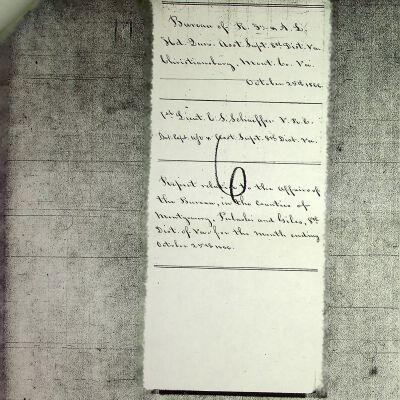 Bureau of R. F. & A. L.,
Hd. Qurs. Asst. Supt. 8th Dist. Va.
Christiansburg, Mont. Co. Va.
October 25th 1866.
1st Lieut. C. S. Schaeffer V. R. C.
Asst. Supt. 8th Dist. Va.
6
Report relative to the Affairs of
the Bureau, in the Counties of
Montgomery, Pulaski and Giles, 8th
Dist. of Va. for the month ending
October 25th 1866.